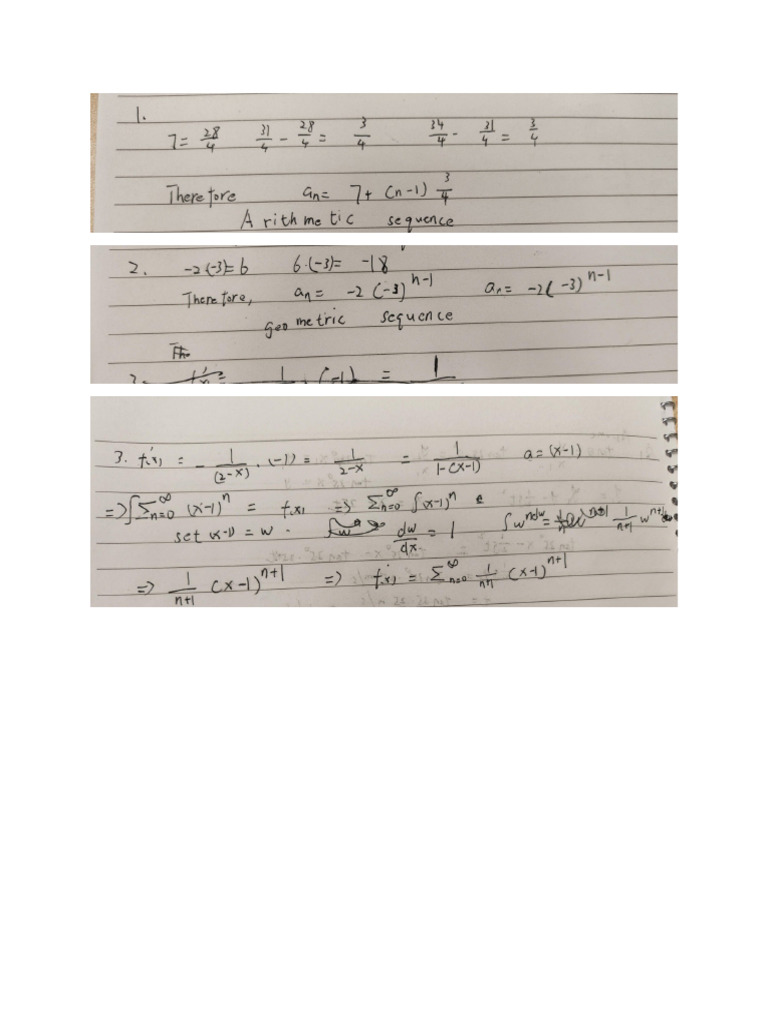 1.
7 = 28/4   31/4 - 28/4 = 3/4   34/4 - 31/4 = 3/4
Therefore   aₙ = 7 + (n-1) 3/4
Arithmetic sequence
2.   -2·(-3) = 6   6·(-3) = -18
Therefore,   aₙ = -2(-3)ⁿ⁻¹   aₙ = -2(-3)ⁿ⁻¹
geometric sequence
3. f'(x) = -1/(2-x) · (-1) = 1/(2-x) = 1/(1-(x-1))   a = (x-1)
=> ∫∑ₙ₌₀^∞ (x-1)ⁿ = f(x) => ∑ₙ₌₀^∞ ∫(x-1)ⁿ
set (x-1) = w .   dw/dx = 1   ∫wⁿdw = 1/(n+1) wⁿ⁺¹
=> 1/(n+1) (x-1)ⁿ⁺¹ => f(x) = ∑ₙ₌₀^∞ 1/(n+1) (x-1)ⁿ⁺¹